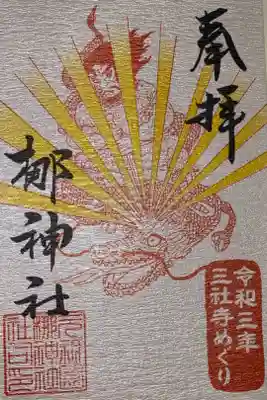 奉拝
梛神社
令和三年
三社寺めぐり